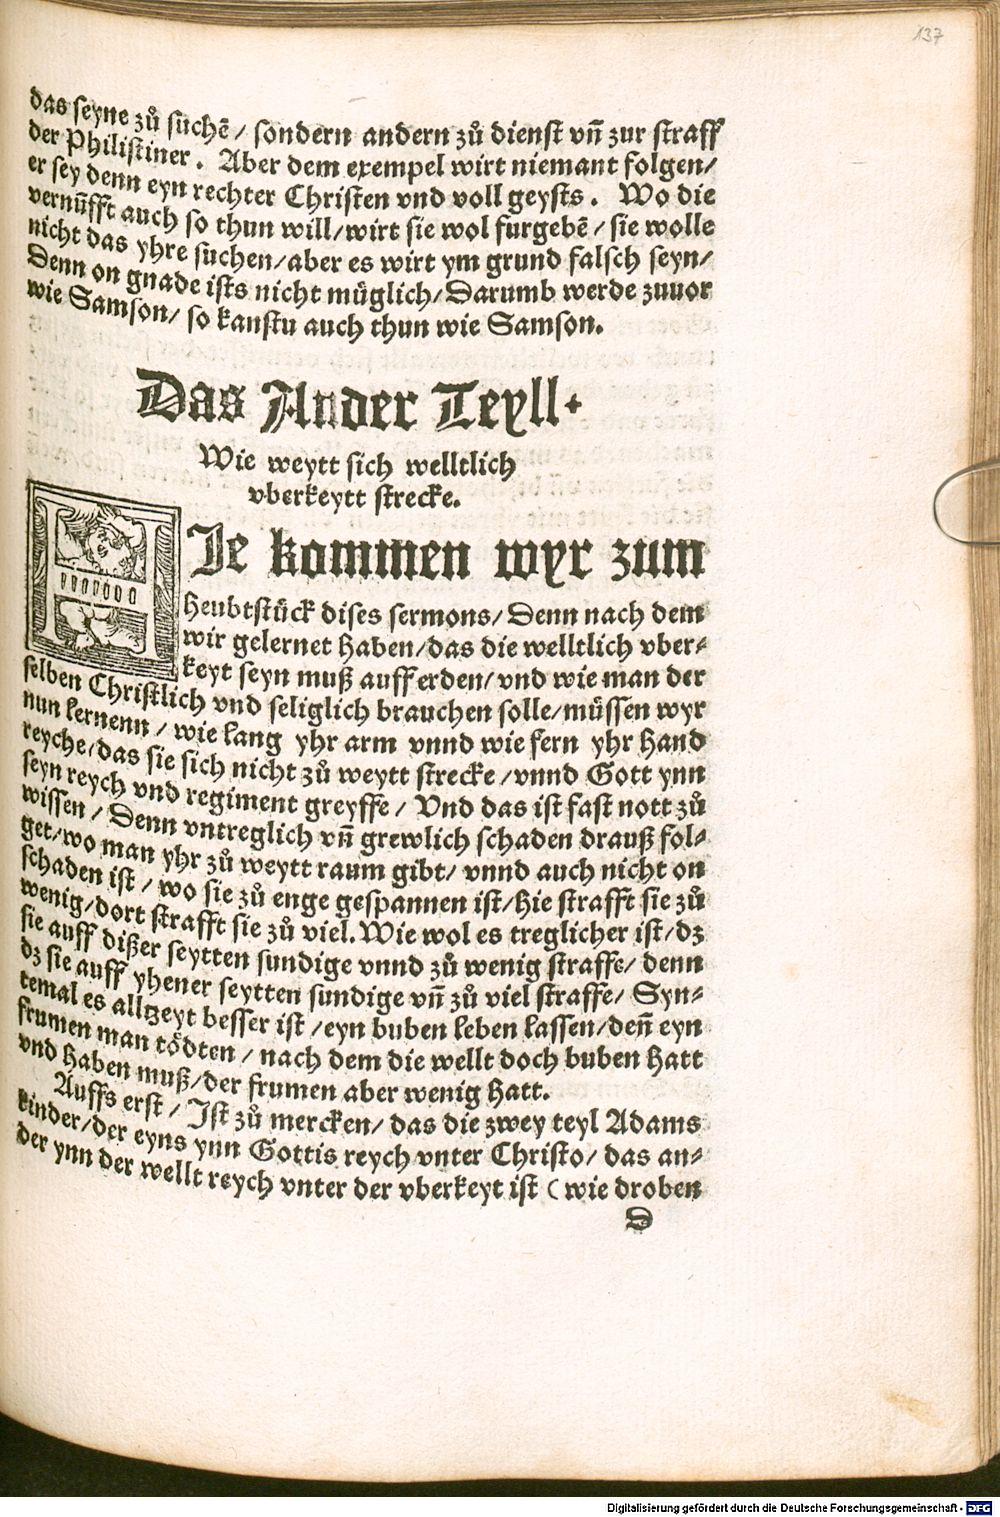 137
das seyne zů suchē / sondern andern zů dienst vn̄ zur straff
der Philistiner . Aber dem exempel wirt niemant folgen/
er sey denn eyn rechter Christen vnd voll geysts . Wo die
vernūfft auch so thun will/wirt sie wol furgebē / sie wolle
nicht das yhre suchen/aber es wirt ym grund falsch seyn/
Denn on gnade ists nicht müglich/Darumb werde zuuor
wie Samson/ so kanstu auch thun wie Samson.
Das Ander Teyll.
Wie weytt sich welltlich
vberkeytt strecke.
HIe kommen wyr zum
heubtstück dises sermons/Denn nach dem
wir gelernet haben/das die welltlich vber-
keyt seyn muß auff erden/vnd wie man der
selben Christlich vnd seliglich brauchen solle/müssen wyr
nun lernenn / wie lang yhr arm vnnd wie fern yhr hand
reyche/das sie sich nicht zů weytt strecke /vnnd Gott ynn
seyn reych vnd regiment greyffe / Vnd das ist fast nott zů
wissen / Denn vntreglich vn̄ grewlich schaden drauß fol-
get/wo man yhr zů weytt raum gibt/ vnnd auch nicht on
schaden ist / wo sie zů enge gespannen ist/hie strafft sie zů
wenig/dort strafft sie zů viel.Wie wol es treglicher ist/dz
sie auff dißer seytten sundige vnnd zů wenig straffe/ denn
dz sie auff yhener seytten sundige vn̄ zů viel straffe/ Syn-
temal es alltzeyt besser ist /eyn buben leben lassen/den̄ eyn
frumen man tödten / nach dem die wellt doch buben hatt
vnd haben muß/der frumen aber wenig hatt.
Auffs erst / Ist zů mercken/ das die zwey teyl Adams
kinder/der eyns ynn Gottis reych vnter Christo/ das an-
der ynn der wellt reych vnter der vberkeyt ist (wie droben
D
Digitalisierung gefördert durch die Deutsche Forschungsgemeinschaft - DFG